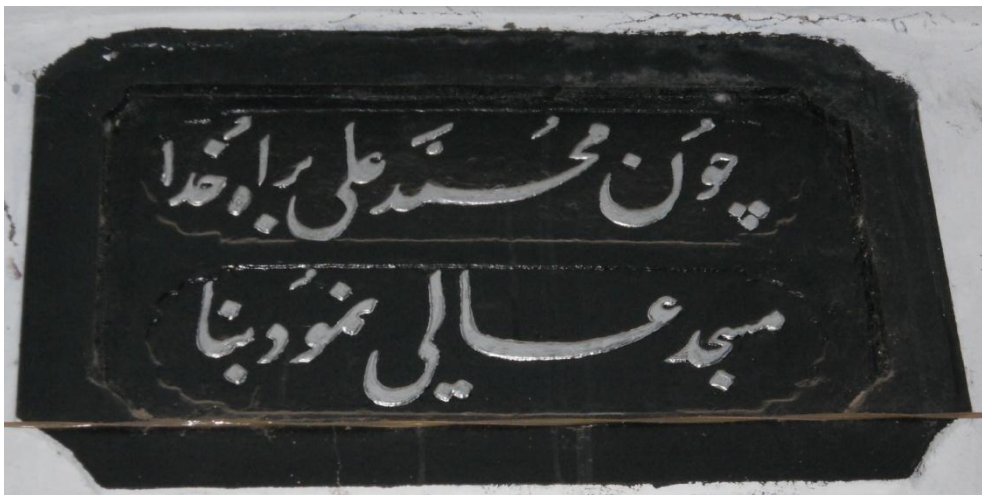 چوُن محمّد علی براہ خُدا
مسجد عالی نموُد بنا